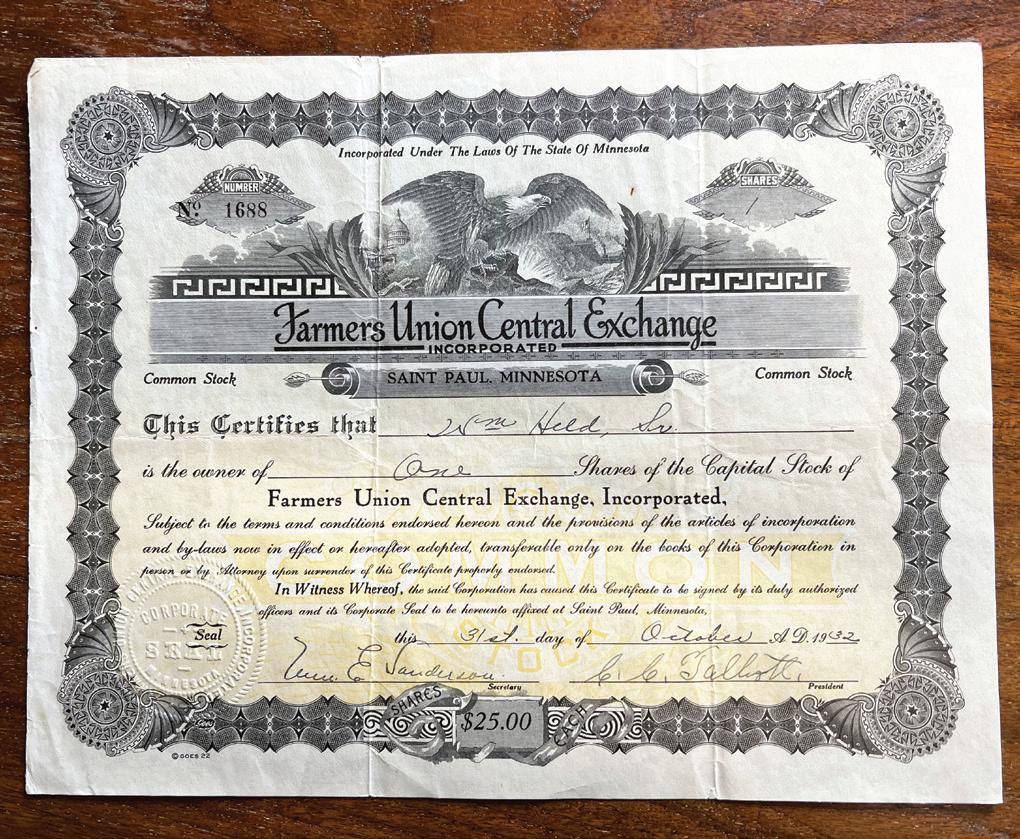 Incorporated Under The Laws Of The State Of Minnesota
NUMBER
SHARES
No. 1688
1
Farmers Union Central Exchange
INCORPORATED
Common Stock
SAINT PAUL, MINNESOTA
Common Stock
This Certifies that Wm Held, Sr.
is the owner of One Shares of the Capital Stock of
Farmers Union Central Exchange, Incorporated,
Subject to the terms and conditions endorsed hereon and the provisions of the articles of incorporation
and by-laws now in effect or hereafter adopted, transferable only on the books of this Corporation in
person or by Attorney upon surrender of this Certificate properly endorsed.
COMMON
In Witness Whereof, the said Corporation has caused this Certificate to be signed by its duly authorized
officers and its Corporate Seal to be hereunto affixed at Saint Paul, Minnesota,
CORPORATE
Seal
SEAL
this 31st. day of October A.D. 1932
STOCK
E. Sanderson C. C. Talbott.
Secretary
President
SHARES
$25.00
EACH
Goes
© GOES 22